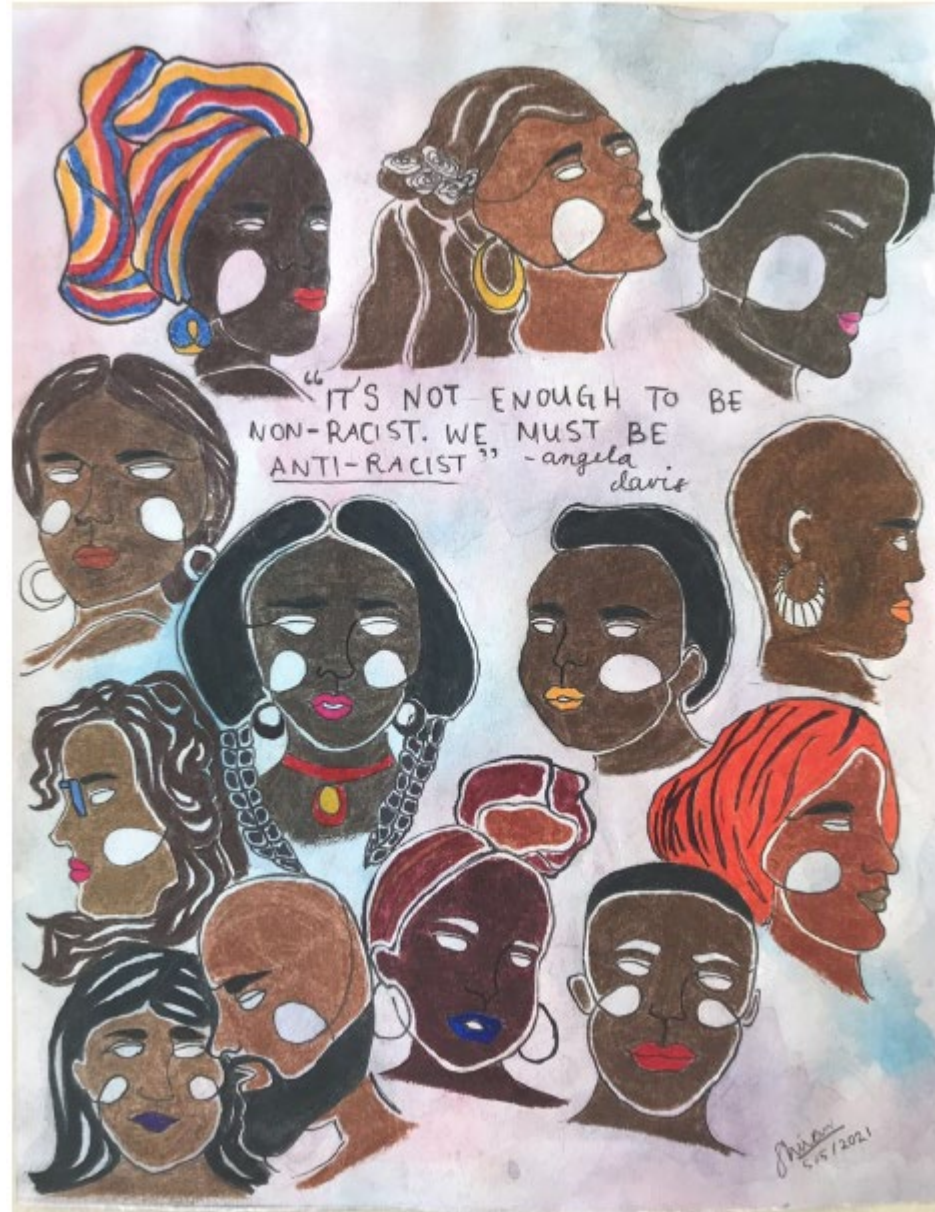 “IT'S NOT ENOUGH TO BE
NON-RACIST. WE MUST BE
ANTI-RACIST” -angela
davis
5/5/2021